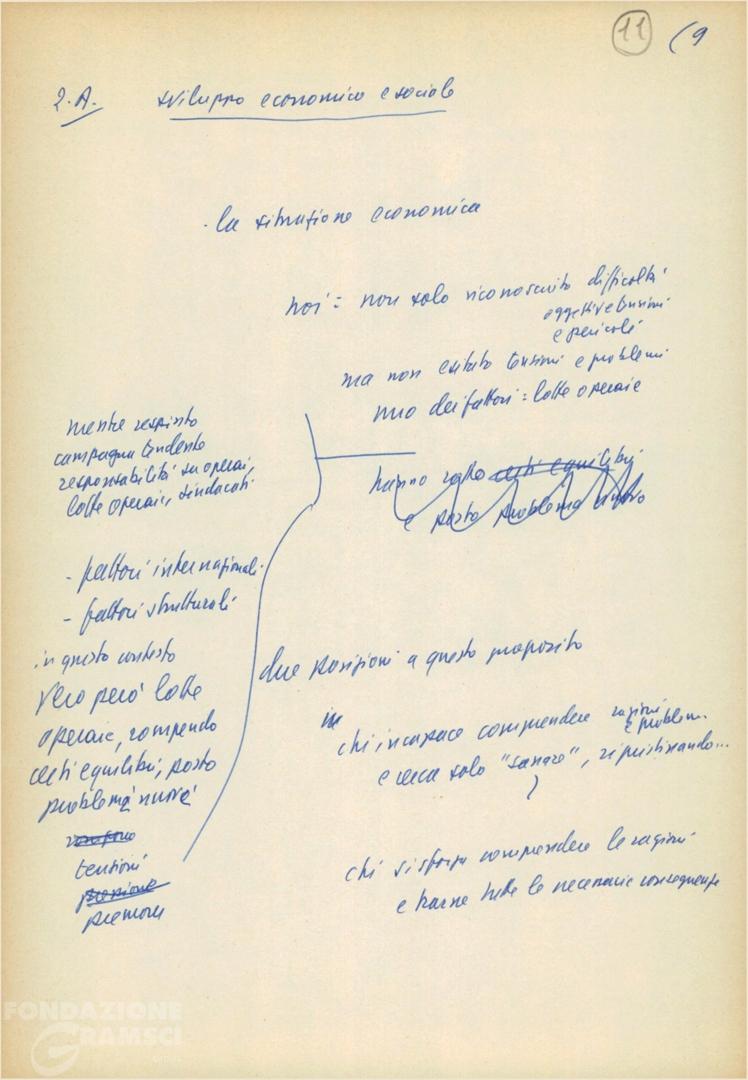 11 (9
2.A. sviluppo economico e sociale
. la situazione economica
noi = non solo riconosciuto difficoltà
oggettive tensioni
e pericoli
ma non esitato tensioni e problemi
uno dei fattori = lotte operaie
hanno rotto certi equilibri
e posto problema nuovo
mentre respinto
campagna tendente
responsabilità su operai,
lotte operaie, sindacati
- fattori internazionali
- fattori strutturali
in questo contesto
vero però lotte
operaie, rompendo
certi equilibri, posto
problemi nuovi
tensioni
pressione
pressioni
due posizioni a questo proposito
chi incapace comprendere ragioni
e problemi
e cerca solo "sanare", ripristinando...
chi si sforza comprendere le ragioni
e trarne tutte le necessarie conseguenze
FONDAZIONE
GRAMSCI